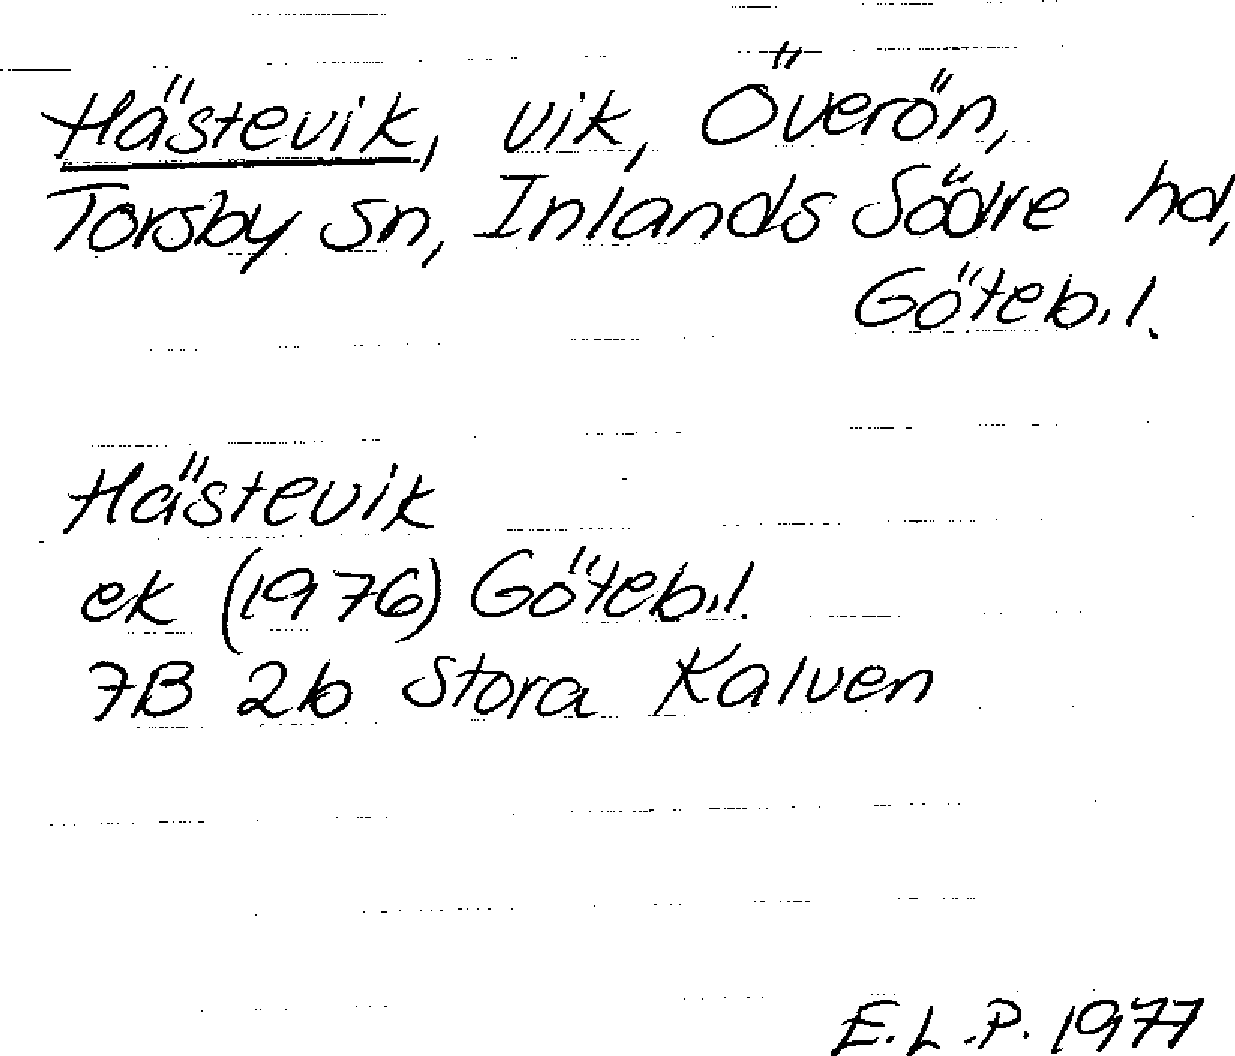 Hästevik, vik, Överön,
Torsby sn, Inlands Södre hd,
Göteb.l.
Hästevik
ek (1976) Göteb.l.
7B 2b Stora Kalven
E.L.P. 1977